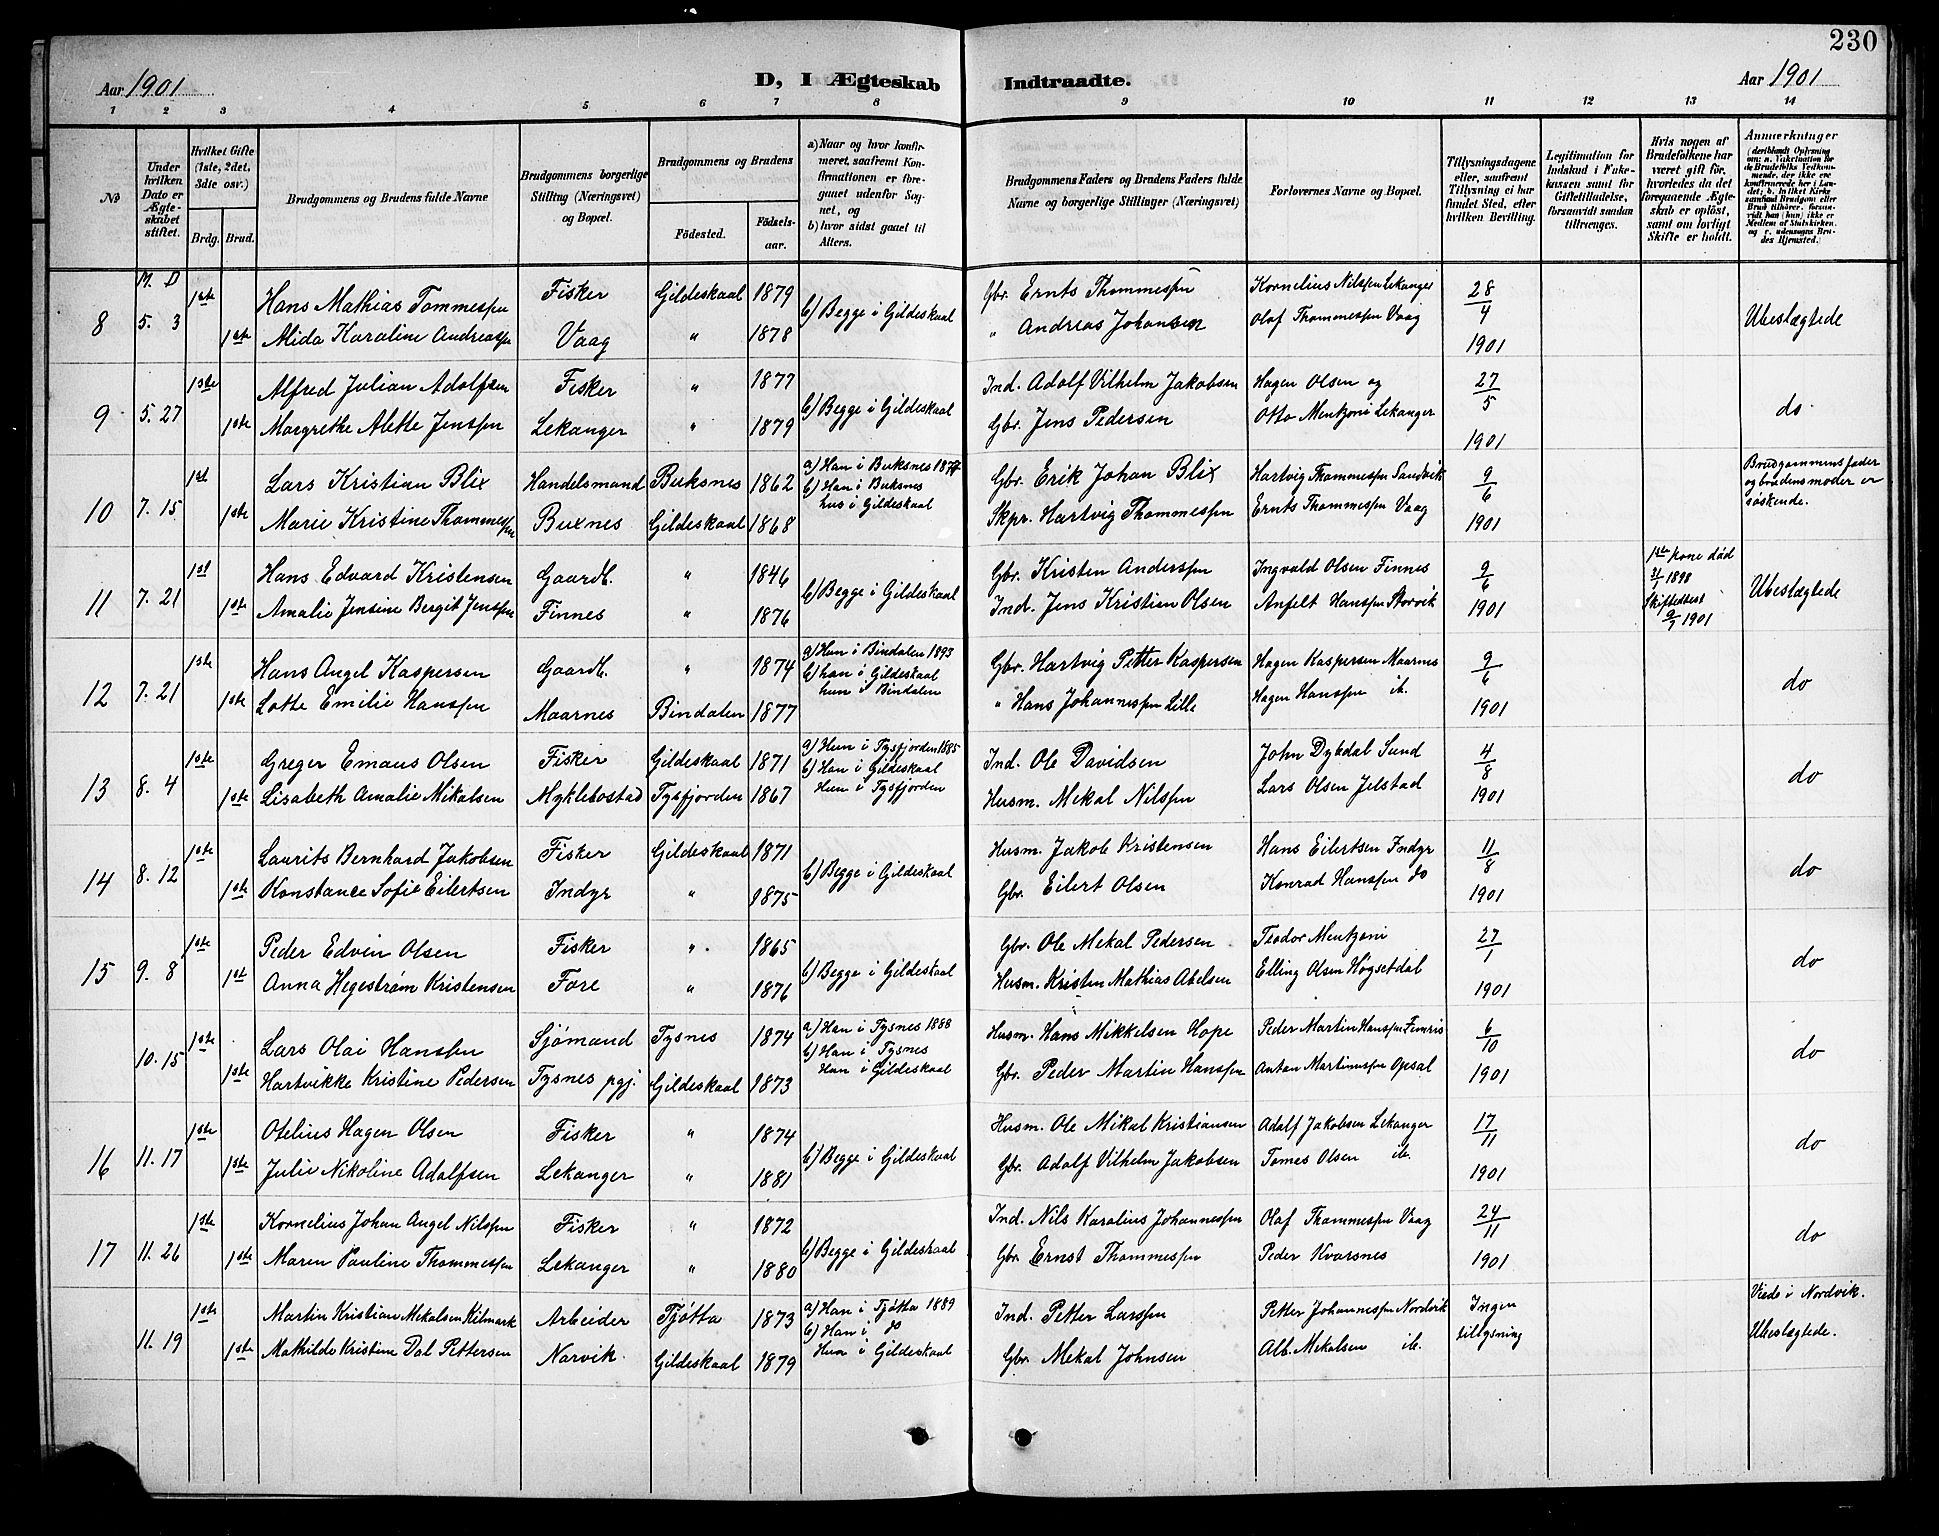 230
Aar 1901
D, I Ægteskab Indtraadte.
Aar 1901
1 2 3 4 5 6 7 8 9 10 11 12 13 14
№
Under hvilken Dato er Ægteskabet stiftet.
Hvilket Gifte (1ste, 2det, 3die osv.)
Brdg. Brud.
Brudgommens og Brudens fulde Navne
Brudgommens borgerlige Stilling (Næringsvei) og Bopæl.
Brudgommens og Brudens
Födested. Födselsaar.
a) Naar og hvor konfirmeret, saafremt Konfirmationen er foregaaet udenfor Sognet, og
b) hvor sidst gaaet til Alters.
Brudgommens Faders og Brudens Faders fulde Navne og borgerlige Stillinger (Næringsvei)
Forlovernes Navne og Bopæl.
Tillysningsdagene eller, saafremt Tillysning ei har fundet Sted, efter hvilken Bevilling.
Legitimation for Indskud i Enkekassen samt for Giftetilladelse, forsaavidt saadan tiltrænges.
Hvis nogen af Brudefolkene har været gift för, hvorledes da det foregaaende Ægteskab er oplöst, samt om lovligt Skifte er holdt.
Anmærkninger (deriblandt Oplysning om: a. Vakcination for de Brudefolks Vedkommende, der ikke ere konfirmerede her i Landet; b. hvilket Kirkesamfund Brudgom eller Brud tilhörer, forsaavidt han (hun) ikke er Medlem af Statskirken, og c. udensogns Brudes Hjemsted.)
M. D
8 5. 3 1ste Hans Mathias Tommessen Fisker Gildeskaal 1879 b) Begge i Gildeskaal Gbr. Ernts Thommessen Kornelius Nilssen Lekanger 28/4 1901 Ubeslægtede
1ste Alida Karoline Andreassen Vaag " 1878 " Andreas Johansen Olaf Thommessen Vaag
9 5. 27 1ste Alfred Julian Adolfsen Fisker " 1877 b) Begge i Gildeskaal Ind. Adolf Vilhelm Jakobsen Hagen Olsen og 27/5 1901 do.
1ste Margrethe Alette Jenssen Lekanger " 1879 Gbr. Jens Pedersen Otto Mentzoni Lekanger
10 7. 15 1st Lars Kristian Blix Handelsmand Buksnes 1862 a) Han i Buksnes b) Han i Buksnes Gbr. Erik Johan Blix Hartvig Thommessen Sandvik 9/6 1901 Brudgommens fader og brudens moder er søskende.
1ste Marie Kristine Thommessen Buxnes Gildeskaal 1868 hus i Gildeskaal Skpr. Hartvig Thommessen Ernts Thommessen Vaag
11 7. 21 1st Hans Edvard Kristensen Gaardb. " 1846 b) Begge i Gildeskaal Gbr. Kristen Anderssen Ingvald Olsen Finnes 9/6 1901 1ste kone död 1898 1901 Ubeslægtede
1ste Amalie Jensine Bergit Jenssen Finnes " 1876 Ind. Jens Kristian Olsen Anfelt Hanssen Storvik
12 7. 21 1ste Hans Angel Kaspersen Gaardb. " 1874 a) Hun i Bindalen 1893 b) han i Gildeskaal Gbr. Hartvig Petter Kaspersen Hagen Kaspersen Maarnes 9/6 1901 do
1ste Lotte Emilie Hanssen Maarnes Bindalen 1877 hun i Bindalen " Hans Johannessen Lille Hagen Hanssen ib.
13 8. 4 1ste Greger Emaus Olsen Fisker Gildeskaal 1871 a) Hun i Tysfjorden 1885 b) Han i Gildeskaal Ind. Ole Davidsen John Dybdal Sund 4/8 1901 do
1ste Lisabeth Amalie Mikalsen Myklebostad Tysfjorden 1867 Hun i Tysfjorden Husm. Mekal Nilssen Lars Olsen Jelstad
14 8. 12 1ste Laurits Bernhard Jakobsen Fisker Gildeskaal 1871 b) Begge i Gildeskaal Husm. Jakob Kristensen Hans Eilertsen Indyr 11/8 1901 do
1ste Konstance Sofie Eilertsen Indyr " 1875 Gbr. Eilert Olsen Konrad Hanssen do
15 9. 8 1ste Peder Edvin Olsen Fisker " 1865 b) Begge i Gildeskaal Gbr. Ole Mekal Pedersen Teodor Mentzoni 27/1 1901 do
1st. Anna Hegestrøm Kristensen Fore " 1876 Husm. Kristen Mathias Abelsen Elling Olsen Høgsetdal
10. 15 1ste Lars Olai Hansen Sjømand Tysnes 1874 a) Han i Tysnes 1888 b) Han i Tysnes Husm. Hans Mikkelsen Hope Peder Martin Hanssen Femris 6/10 1901 do
1ste Hartvikke Kristine Pedersen Tysnes pgj. Gildeskaal 1873 Hun i Gildeskaal Gbr. Peder Martin Hanssen Anton Martinussen Opsal
16 11. 17 1ste Otelius Hagen Olsen Fisker " 1874 b) Begge i Gildeskaal Husm. Ole Mikal Kristiansen Adolf Jakobsen Lekanger 17/11 1901 do
1ste Julie Nikoline Adolfsen Lekanger " 1881 Gbr. Adolf Vilhelm Jakobsen Tomes Olsen ib.
17 11. 26 1ste Kornelius Johan Angel Nilssen Fisker " 1872 b) Begge i Gildeskaal Ind. Nils Karolius Johannessen Olaf Thommessen Vaag 24/11 1901 do
1ste Maren Pauline Thommessen Lekanger " 1880 Gbr. Ernst Thommessen Peder Kvarsnes
11. 19 1ste Martin Kristian Mekalsen Kilmark Arbeider Tjøtta 1873 a) Han i Tjøtta 1889 b) Han i do Ind. Petter Larssen Petter Johannessen Nordvik Ingen tillysning Viede i Nordvik. Ubeslægtede.
1ste Mathilde Kristine Dal Pettersen Narvik. Gildeskaal 1879 Hun i Gildeskaal Gbr. Mekal Johnsen Alb. Mekalsen ib.